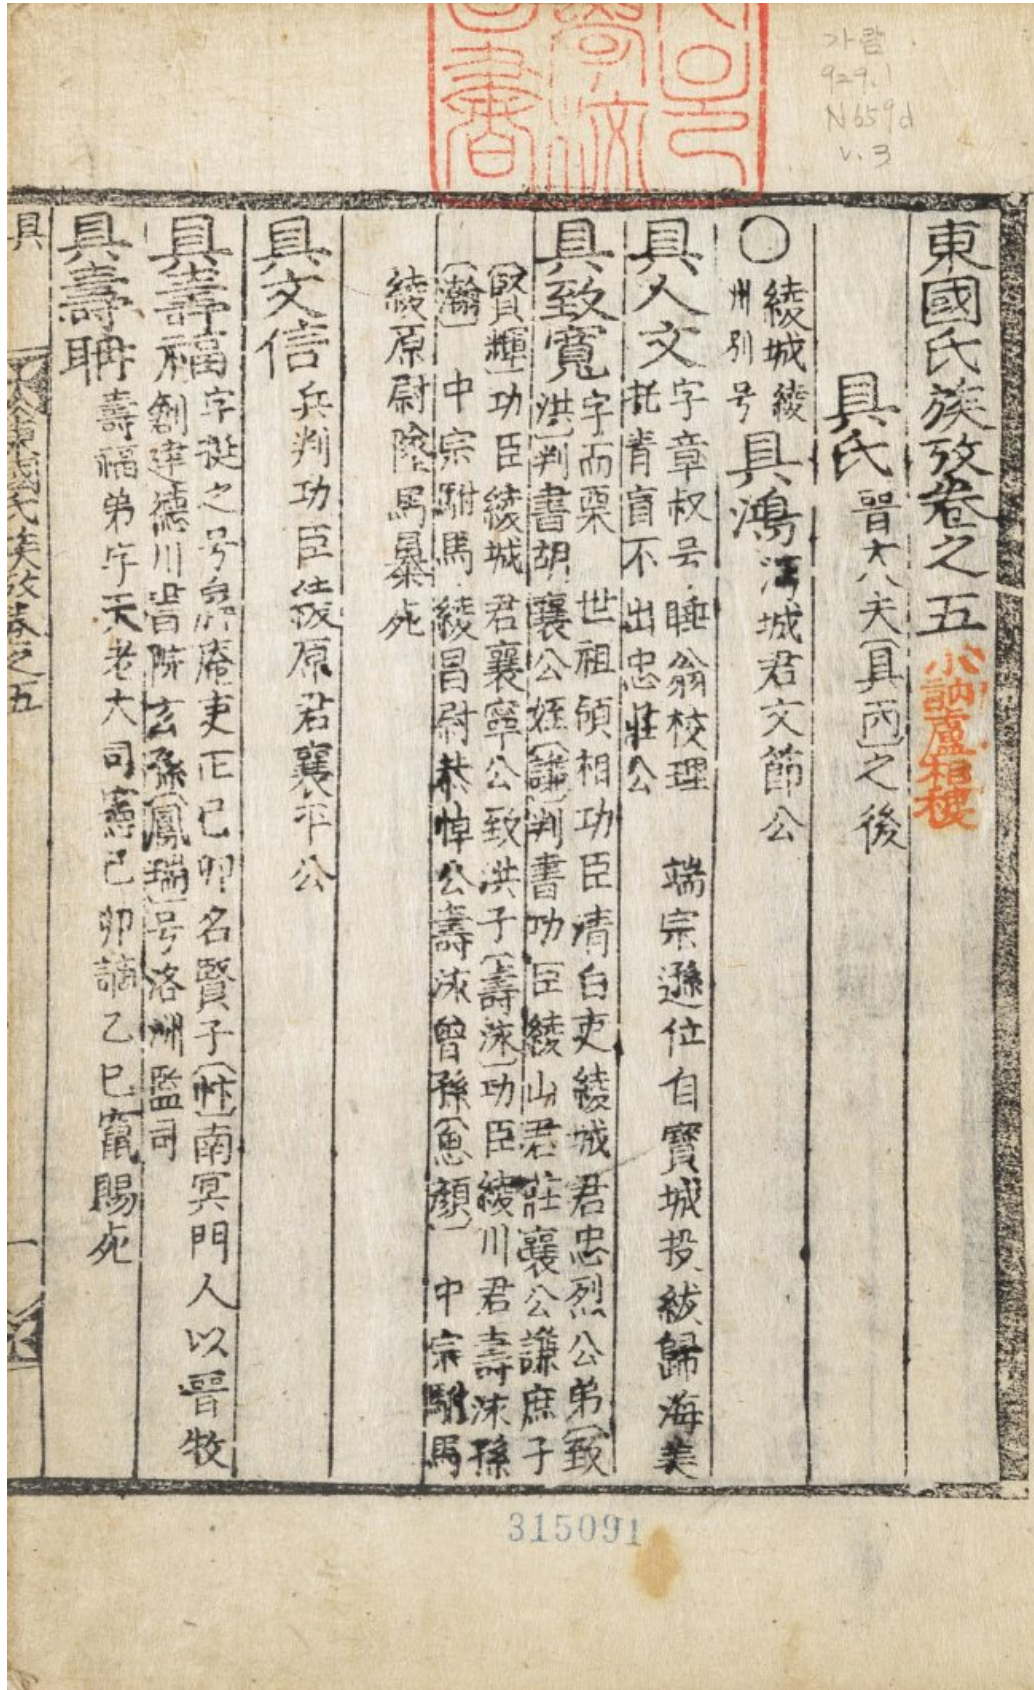 가람
929.1
N659d
v.3
東國氏族攷卷之五
小訥盧相稷
具氏 晋大夫(具丙)之後
○ 綾城綾
州別号 具鴻 沔城君文節公
具人文 字章叔号睡翁校理 端宗遜位自寶城投紱歸海美
托青盲不出忠莊公
具致寬 字而栗 世祖領相功臣清白吏綾城君忠烈公弟(致
洪)判書胡襄公姪(謙)判書功臣綾山君莊襄公謙庶子
(賢輝)功臣綾城君襄寧公致洪子(壽泳)功臣綾川君壽泳孫
(瀚) 中宗駙馬綾昌尉恭悼公壽泳曾孫(思顔) 中宗駙馬
綾原尉墜馬暴死
具文信 兵判功臣綾原君襄平公
具壽福 字挻之号屛庵吏正己卯名賢子(忭)南冥門人以晋牧
創建德川書院玄孫(鳳瑞)号洛洲監司
具壽聃 壽福弟字天老大司憲己卯謫乙巳竄賜死
具
東國氏族攷卷之五
一
315091